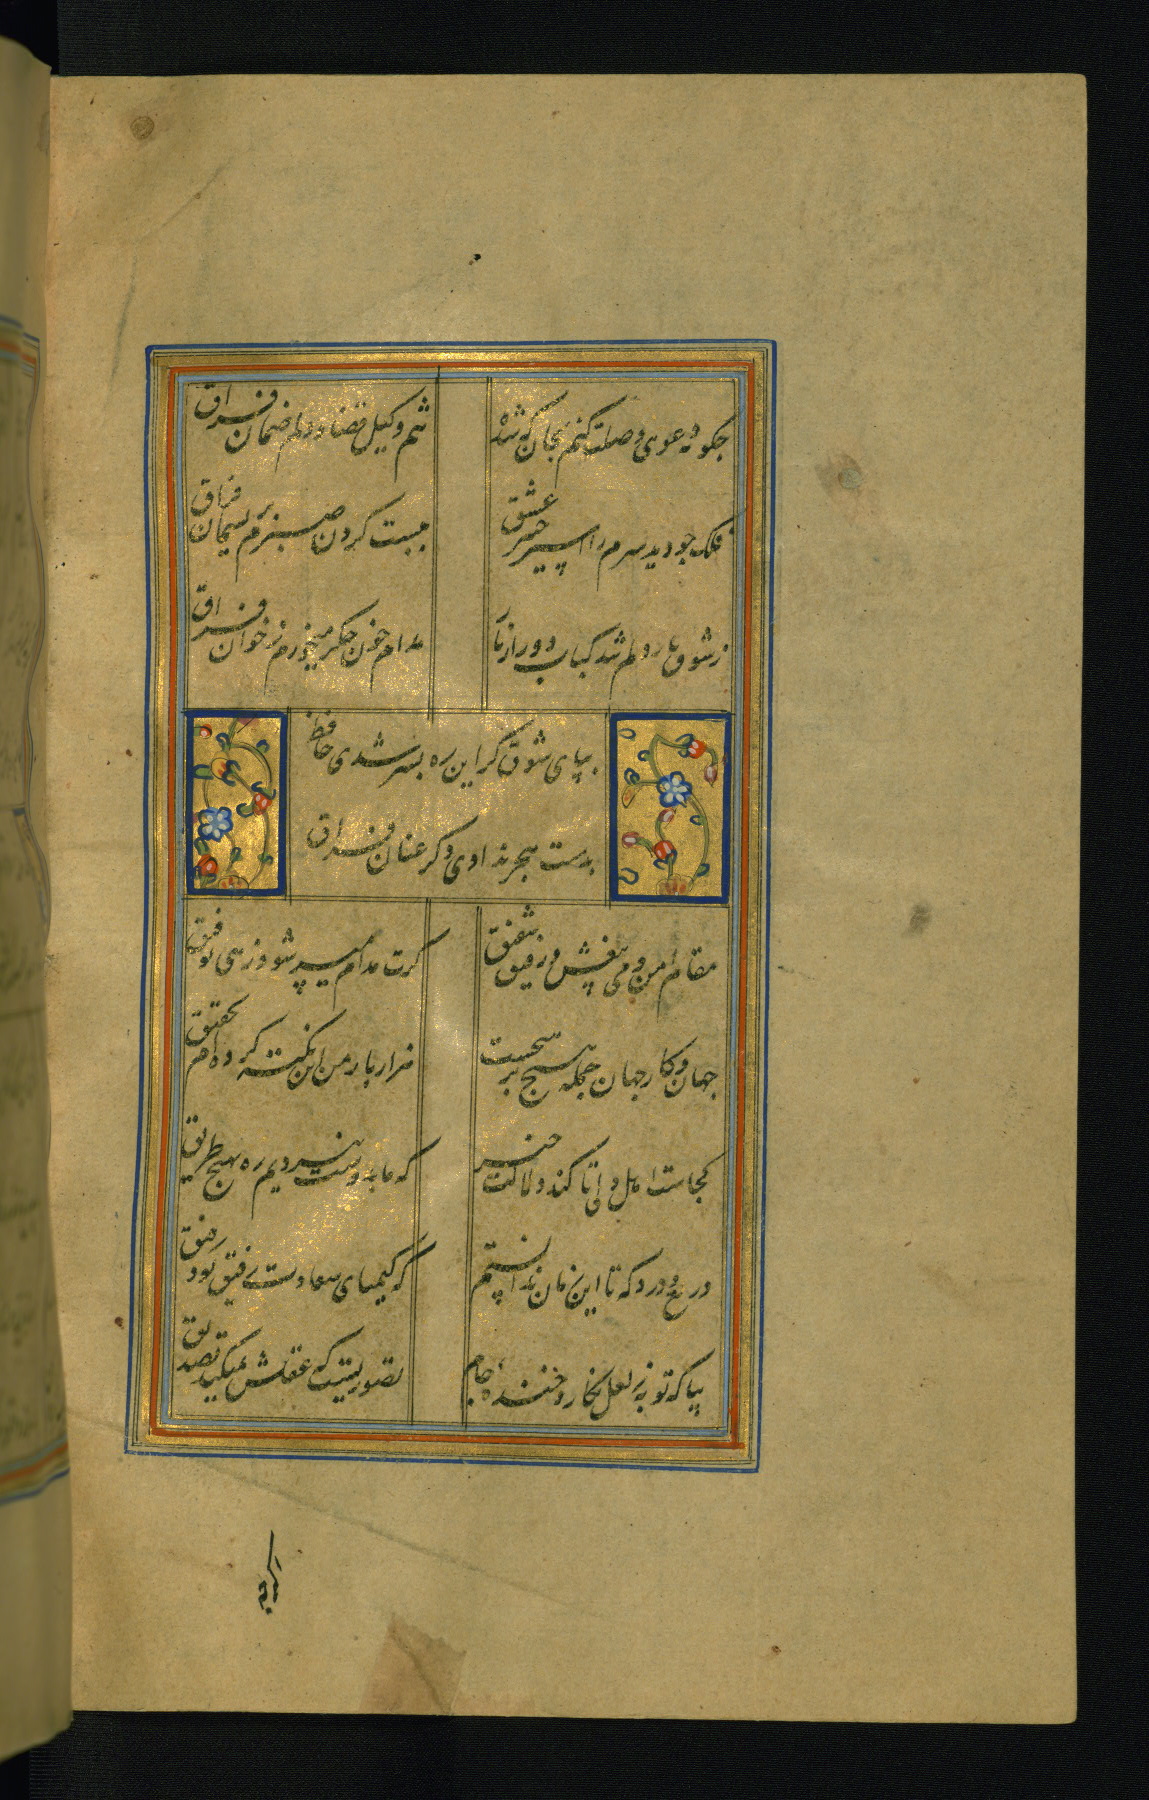 چگونه دعوی وصلت کنم بجان که شد
تنم وکیل قضا و دلم ضمان فراق
فلک چو دید سرم را اسیر چنبر عشق
ببست گردن صبرم بریسمان فراق
ز شوق یار دلم شد کباب و دور از یار
مدام خون جگر میخورم ز خوان فراق
بپای شوق گر این ره بسر شدی حافظ
بدست هجر ندادی دگر عنان فراق
مقام امن و می بیغش و رفیق شفیق
گرت مدام میسر شود زهی توفیق
جهان و کار جهان جمله هیچ بر هیچست
هزار بار من این نکته کرده‌ام تحقیق
کجاست اهل دلی تا کند دلالت خیر
که ما بدوست نبردیم ره بهیچ طریق
دریغ و درد که تا این زمان ندانستم
که کیمیای سعادت رفیق بود رفیق
بیا که توبه ز لعل نگار و خنده جام
تصوریست که عقلش نمیکند تصدیق
اگرچه